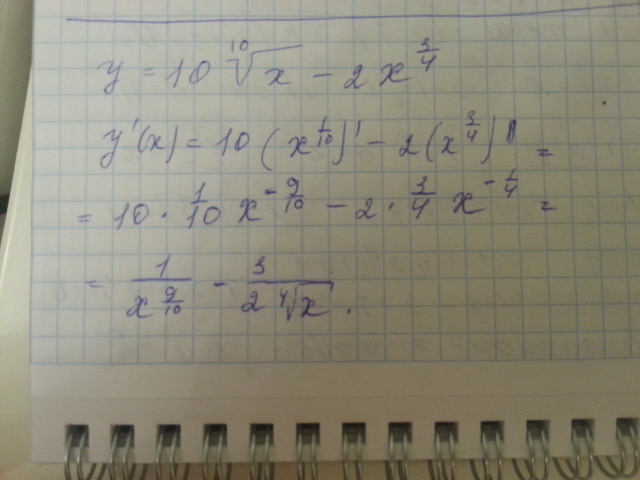 y = 10 ¹⁰√x − 2x^(3/4)
y'(x) = 10(x^(1/10))' − 2(x^(3/4))' =
= 10 · 1/10 x^(−9/10) − 2 · 3/4 x^(−1/4) =
= 1/x^(9/10) − 3/(2 ⁴√x).